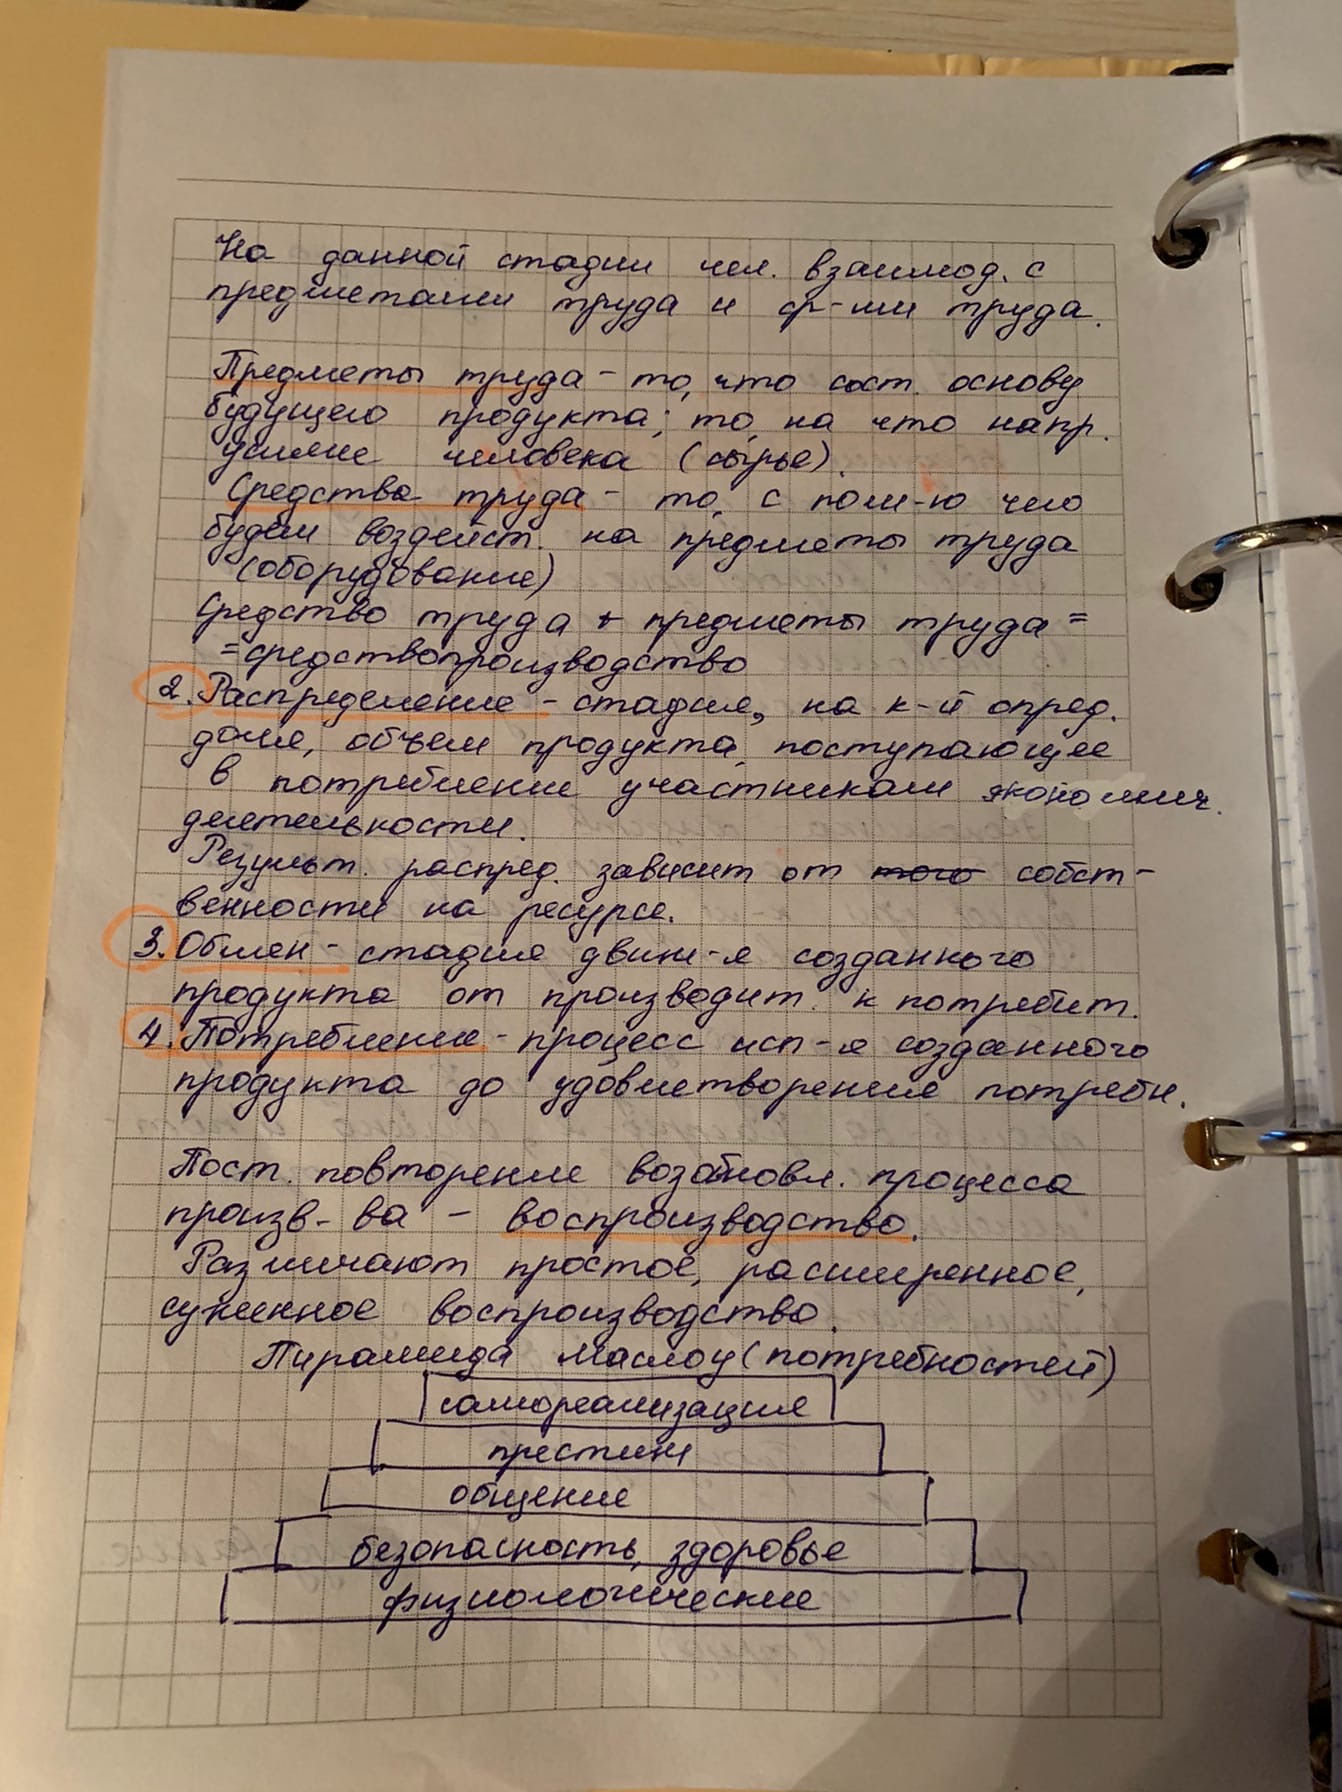 На данной стадии чел. взаимод. с
предметами труда и ср-ми труда.
Предметы труда - то, что сост. основу
будущего продукта; то, на что напр.
усилие человека (сырье).
Средства труда - то, с пом-ю чего
будем воздейст. на предметы труда
(оборудование)
Средство труда + предметы труда =
= средствопроизводство
2. Распределение - стадия, на к-й опред.
доля, объем продукта, поступающее
в потребление участникам экономич.
деятельности.
Результ. распред. зависит от того собст-
венности на ресурсе.
3. Обмен - стадия движ-я созданного
продукта от производит. к потребит.
4. Потребление - процесс исп-я созданного
продукта до удовлетворения потребн.
Пост. повторение возобновл. процесса
произв-ва - воспроизводство.
Различают простое, расширенное,
суженное воспроизводство.
Пирамида Маслоу (потребностей)
самореализация
престиж
общение
безопасность, здоровье
физиологические